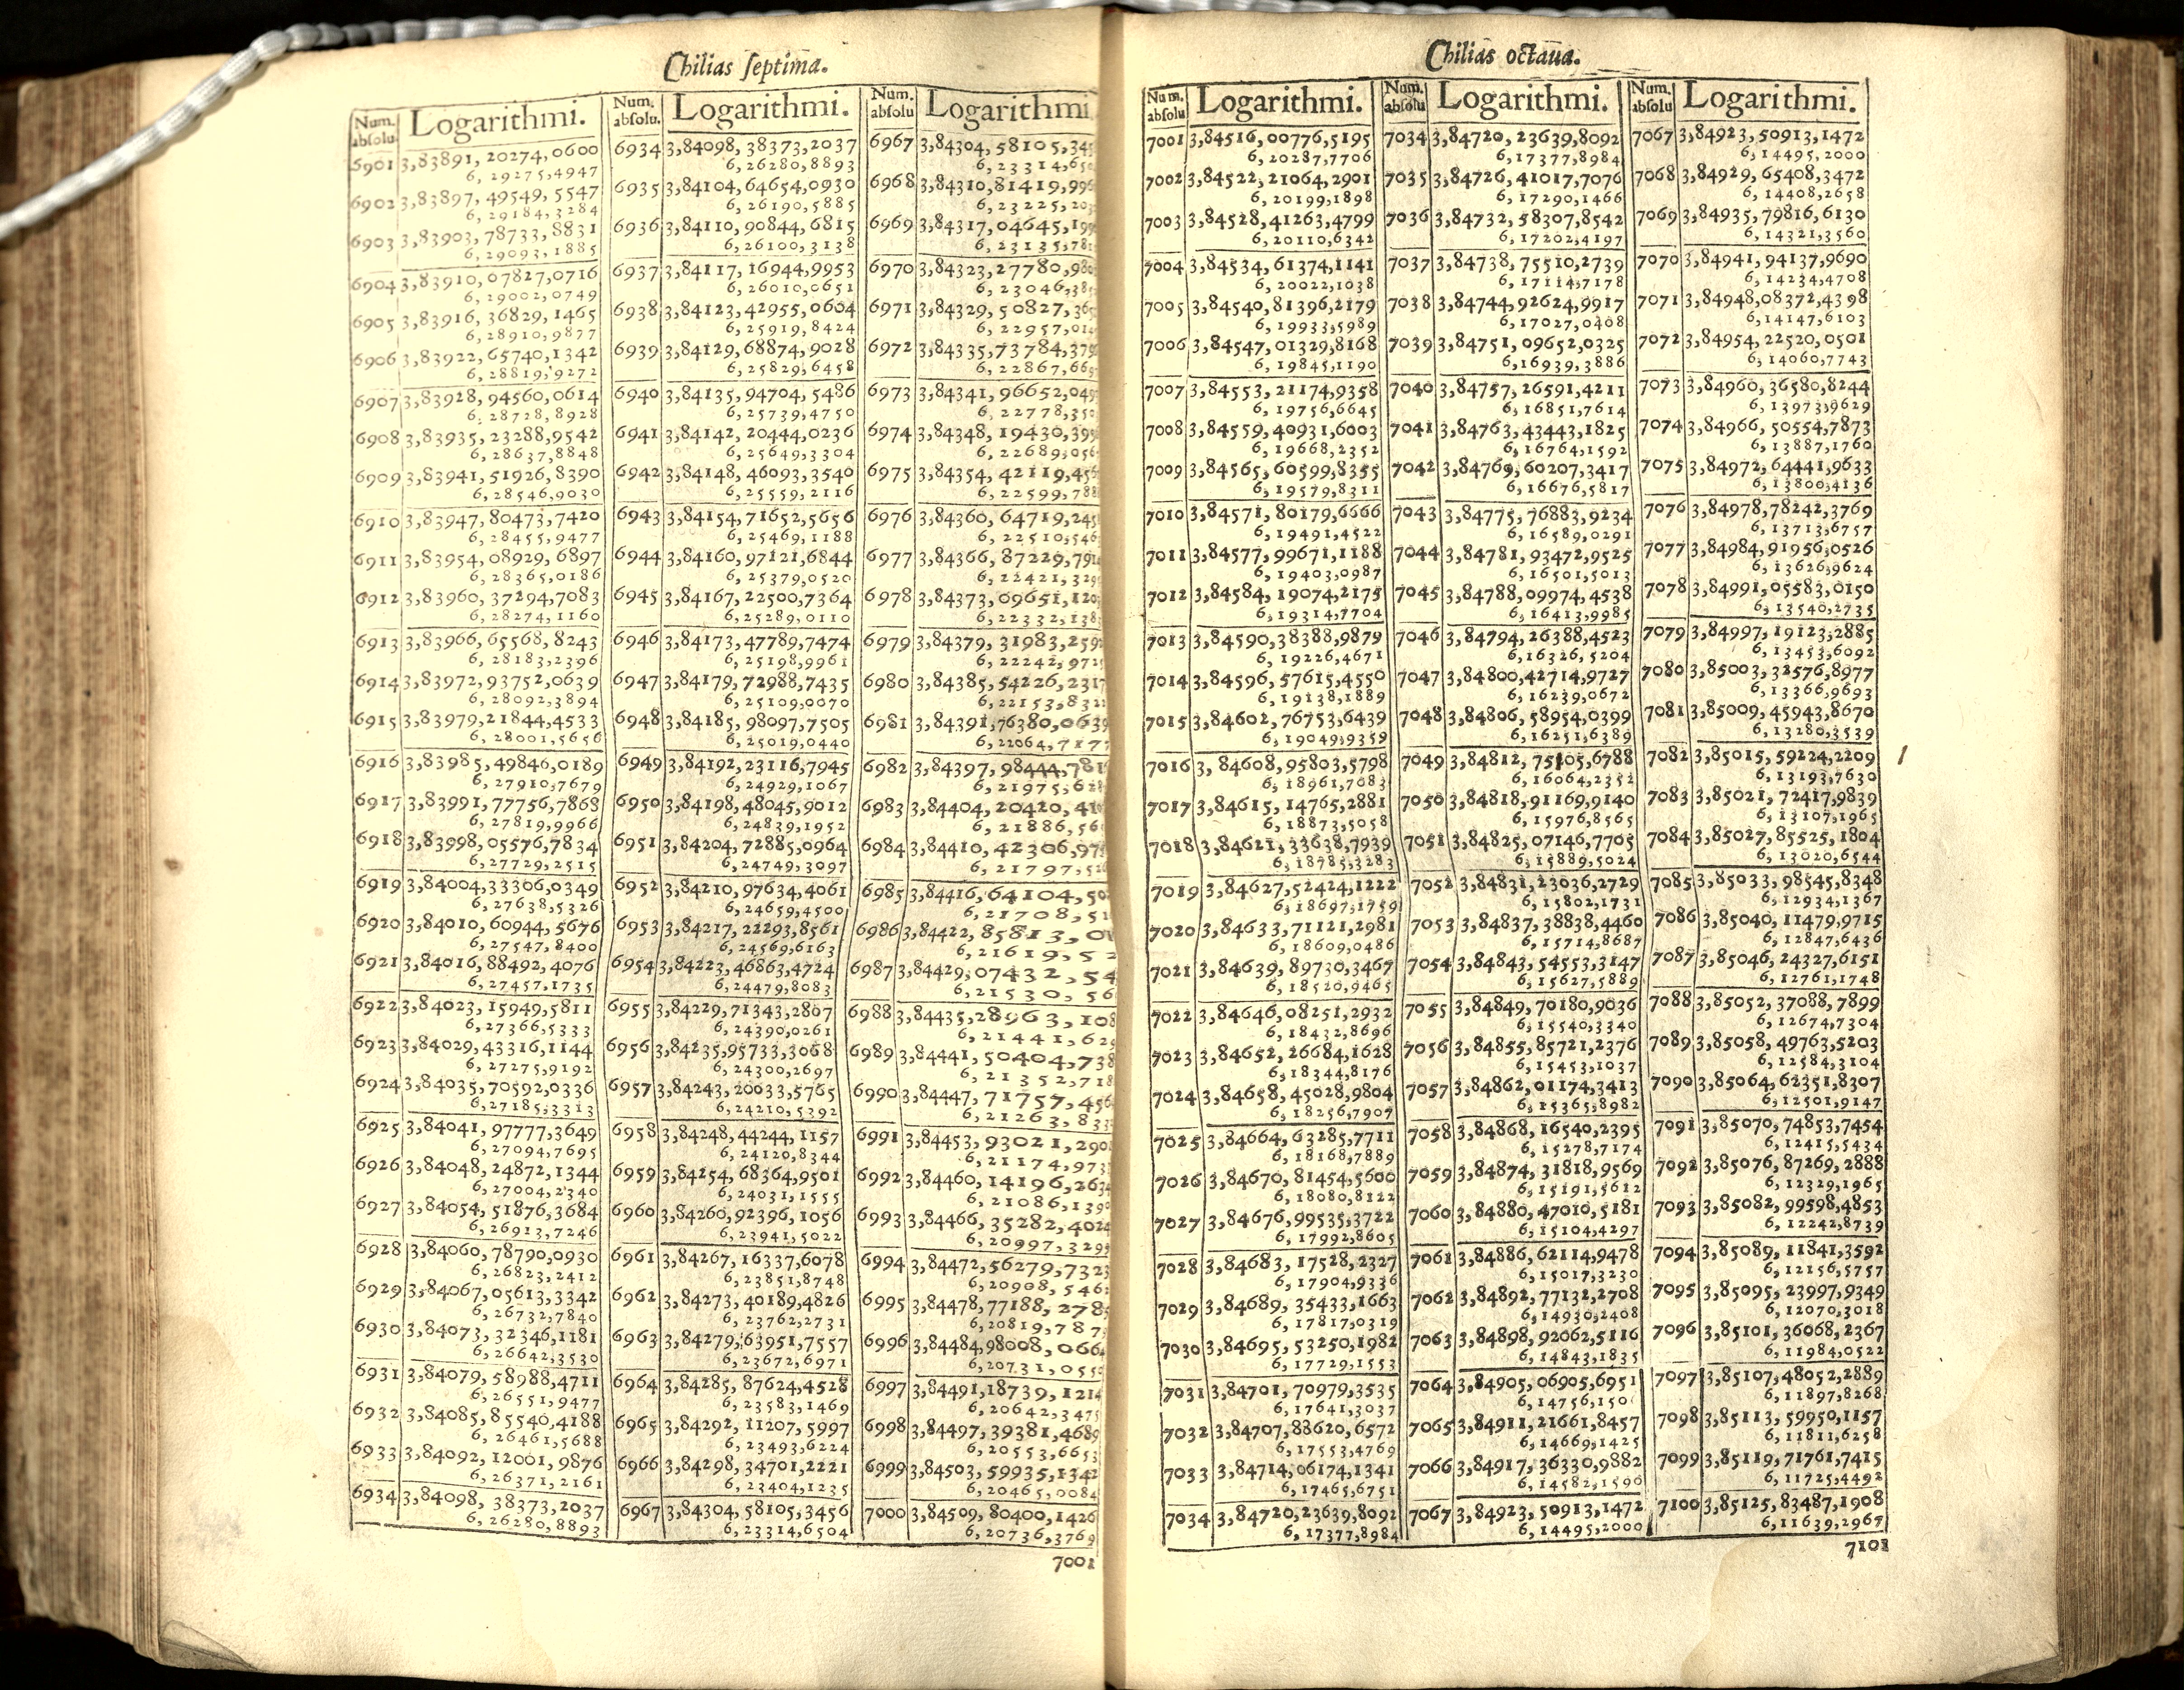 Chilias septima.
Num. absolu. Logarithmi.
6901 3,83891,20274,0600
6,29275,4947
6902 3,83897,49549,5547
6,29184,3284
6903 3,83903,78733,8831
6,29093,1885
6904 3,83910,07827,0716
6,29002,0749
6905 3,83916,36829,1465
6,28910,9877
6906 3,83922,65740,1342
6,28819,9272
6907 3,83928,94560,0614
6,28728,8928
6908 3,83935,23288,9542
6,28637,8848
6909 3,83941,51926,8390
6,28546,9030
6910 3,83947,80473,7420
6,28455,9477
6911 3,83954,08929,6897
6,28365,0186
6912 3,83960,37294,7083
6,28274,1160
6913 3,83966,65568,8243
6,28183,2396
6914 3,83972,93752,0639
6,28092,3894
6915 3,83979,21844,4533
6,28001,5656
6916 3,83985,49846,0189
6,27910,7679
6917 3,83991,77756,7868
6,27819,9966
6918 3,83998,05576,7834
6,27729,2515
6919 3,84004,33306,0349
6,27638,5326
6920 3,84010,60944,5676
6,27547,8400
6921 3,84016,88492,4076
6,27457,1735
6922 3,84023,15949,5811
6,27366,5333
6923 3,84029,43316,1144
6,27275,9192
6924 3,84035,70592,0336
6,27185,3313
6925 3,84041,97777,3649
6,27094,7695
6926 3,84048,24872,1344
6,27004,2340
6927 3,84054,51876,3684
6,26913,7246
6928 3,84060,78790,0930
6,26823,2412
6929 3,84067,05613,3342
6,26732,7840
6930 3,84073,32346,1181
6,26642,3530
6931 3,84079,58988,4711
6,26551,9477
6932 3,84085,85540,4188
6,26461,5688
6933 3,84092,12001,9876
6,26371,2161
6934 3,84098,38373,2037
6,26280,8893
Num. absolu. Logarithmi.
6934 3,84098,38373,2037
6,26280,8893
6935 3,84104,64654,0930
6,26190,5885
6936 3,84110,90844,6815
6,26100,3138
6937 3,84117,16944,9953
6,26010,0651
6938 3,84123,42955,0604
6,25919,8424
6939 3,84129,68874,9028
6,25829,6458
6940 3,84135,94704,5486
6,25739,4750
6941 3,84142,20444,0236
6,25649,3304
6942 3,84148,46093,3540
6,25559,2116
6943 3,84154,71652,5656
6,25469,1188
6944 3,84160,97121,6844
6,25379,0520
6945 3,84167,22500,7364
6,25289,0110
6946 3,84173,47789,7474
6,25198,9961
6947 3,84179,72988,7435
6,25109,0070
6948 3,84185,98097,7505
6,25019,0440
6949 3,84192,23116,7945
6,24929,1067
6950 3,84198,48045,9012
6,24839,1952
6951 3,84204,72885,0964
6,24749,3097
6952 3,84210,97634,4061
6,24659,4500
6953 3,84217,22293,8561
6,24569,6163
6954 3,84223,46863,4724
6,24479,8083
6955 3,84229,71343,2807
6,24390,0261
6956 3,84235,95733,3068
6,24300,2697
6957 3,84243,20033,5765
6,24210,5392
6958 3,84248,44244,1157
6,24120,8344
6959 3,84254,68364,9501
6,24031,1555
6960 3,84260,92396,1056
6,23941,5022
6961 3,84267,16337,6078
6,23851,8748
6962 3,84273,40189,4826
6,23762,2731
6963 3,84279,63951,7557
6,23672,6971
6964 3,84285,87624,4528
6,23583,1469
6965 3,84292,11207,5997
6,23493,6224
6966 3,84298,34701,2221
6,23404,1235
6967 3,84304,58105,3456
6,23314,6504
Num. absolu Logarithmi
6967 3,84304,58105,345
6,23314,65
6968 3,84310,81419,996
6,23225,203
6969 3,84317,04645,199
6,23135,781
6970 3,84323,27780,980
6,23046,38
6971 3,84329,50827,365
6,22957,014
6972 3,84335,73784,379
6,22867,669
6973 3,84341,96652,049
6,22778,350
6974 3,84348,19430,399
6,22689,056
6975 3,84354,42119,456
6,22599,788
6976 3,84360,64719,245
6,22510,546
6977 3,84366,87229,791
6,22421,329
6978 3,84373,09651,120
6,22332,138
6979 3,84379,31983,259
6,22242,972
6980 3,84385,54226,2317
6,22153,832
6981 3,84391,76380,0639
6,22064,7177
6982 3,84397,98444,781
6,21975,628
6983 3,84404,20420,41
6,21886,56
6984 3,84410,42306,97
6,21797,52
6985 3,84416,64104,50
6,21708,51
6986 3,84422,85813,0
6,21619,52
6987 3,84429,07432,54
6,21530,56
6988 3,84435,28963,108
6,21441,629
6989 3,84441,50404,738
6,21352,718
6990 3,84447,71757,456
6,21263,833
6991 3,84453,93021,290
6,21174,973
6992 3,84460,14196,2634
6,21086,139
6993 3,84466,35282,4024
6,20997,3299
6994 3,84472,56279,7323
6,20908,546
6995 3,84478,77188,278
6,20819,787
6996 3,84484,98008,066
6,20731,055
6997 3,84491,18739,1214
6,20642,3475
6998 3,84497,39381,4689
6,20553,6653
6999 3,84503,59935,1342
6,20465,0084
7000 3,84509,80400,1426
6,20736,3769
7001
Chilias octaua.
Num. absolu Logarithmi.
7001 3,84516,00776,5195
6,20287,7706
7002 3,84522,21064,2901
6,20199,1898
7003 3,84528,41263,4799
6,20110,6342
7004 3,84534,61374,1141
6,20022,1038
7005 3,84540,81396,2179
6,19933,5989
7006 3,84547,01329,8168
6,19845,1190
7007 3,84553,21174,9358
6,19756,6645
7008 3,84559,40931,6003
6,19668,2352
7009 3,84565,60599,8355
6,19579,8311
7010 3,84571,80179,6666
6,19491,4522
7011 3,84577,99671,1188
6,19403,0987
7012 3,84584,19074,2175
6,19314,7704
7013 3,84590,38388,9879
6,19226,4671
7014 3,84596,57615,4550
6,19138,1889
7015 3,84602,76753,6439
6,19049,9359
7016 3,84608,95803,5798
6,18961,7083
7017 3,84615,14765,2881
6,18873,5058
7018 3,84621,33638,7939
6,18785,3283
7019 3,84627,52424,1222
6,18697,1759
7020 3,84633,71121,2981
6,18609,0486
7021 3,84639,89730,3467
6,18520,9465
7022 3,84646,08251,2932
6,18432,8696
7023 3,84652,26684,1628
6,18344,8176
7024 3,84658,45028,9804
6,18256,7907
7025 3,84664,63285,7711
6,18168,7889
7026 3,84670,81454,5600
6,18080,8122
7027 3,84676,99535,3722
6,17992,8605
7028 3,84683,17528,2327
6,17904,9336
7029 3,84689,35433,1663
6,17817,0319
7030 3,84695,53250,1982
6,17729,1553
7031 3,84701,70979,3535
6,17641,3037
7032 3,84707,88620,6572
6,17553,4769
7033 3,84714,06174,1341
6,17465,6751
7034 3,84720,23639,8092
6,17377,8984
Num. absolu Logarithmi.
7034 3,84720,23639,8092
6,17377,8984
7035 3,84726,41017,7076
6,17290,1466
7036 3,84732,58307,8542
6,17202,4197
7037 3,84738,75510,2739
6,17114,7178
7038 3,84744,92624,9917
6,17027,0408
7039 3,84751,09652,0325
6,16939,3886
7040 3,84757,26591,4211
6,16851,7614
7041 3,84763,43443,1825
6,16764,1592
7042 3,84769,60207,3417
6,16676,5817
7043 3,84775,76883,9234
6,16589,0291
7044 3,84781,93472,9525
6,16501,5013
7045 3,84788,09974,4538
6,16413,9985
7046 3,84794,26388,4523
6,16326,5204
7047 3,84800,42714,9727
6,16239,0672
7048 3,84806,58954,0399
6,16251,6389
7049 3,84812,75105,6788
6,16064,2352
7050 3,84818,91169,9140
6,15976,8565
7051 3,84825,07146,7705
6,15889,5024
7052 3,84831,23036,2729
6,15802,1731
7053 3,84837,38838,4460
6,15714,8687
7054 3,84843,54553,3147
6,15627,5889
7055 3,84849,70180,9036
6,15540,3340
7056 3,84855,85721,2376
6,15453,1037
7057 3,84862,01174,3413
6,15365,8982
7058 3,84868,16540,2395
6,15278,7174
7059 3,84874,31818,9569
6,15191,5612
7060 3,84880,47010,5181
6,15104,4297
7061 3,84886,62114,9478
6,15017,3230
7062 3,84892,77132,2708
6,14930,2408
7063 3,84898,92062,5116
6,14843,1835
7064 3,84905,06905,6951
6,14756,150
7065 3,84911,21661,8457
6,14669,1425
7066 3,84917,36330,9882
6,14582,1590
7067 3,84923,50913,1472
6,14495,2000
Num. absolu Logarithmi.
7067 3,84923,50913,1472
6,14495,2000
7068 3,84929,65408,3472
6,14408,2658
7069 3,84935,79816,6130
6,14321,3560
7070 3,84941,94137,9690
6,14234,4708
7071 3,84948,08372,4398
6,14147,6103
7072 3,84954,22520,0501
6,14060,7743
7073 3,84960,36580,8244
6,13973,9629
7074 3,84966,50554,7873
6,13887,1760
7075 3,84972,64441,9633
6,13800,4136
7076 3,84978,78242,3769
6,13713,6757
7077 3,84984,91956,0526
6,13626,9624
7078 3,84991,05583,0150
6,13540,2735
7079 3,84997,19123,2885
6,13453,6092
7080 3,85003,32576,8977
6,13366,9693
7081 3,85009,45943,8670
6,13280,3539
7082 3,85015,59224,2209
6,13193,7630
7083 3,85021,72417,9839
6,13107,1965
7084 3,85027,85525,1804
6,13020,6544
7085 3,85033,98545,8348
6,12934,1367
7086 3,85040,11479,9715
6,12847,6436
7087 3,85046,24327,6151
6,12761,1748
7088 3,85052,37088,7899
6,12674,7304
7089 3,85058,49763,5203
6,12584,3104
7090 3,85064,62351,8307
6,12501,9147
7091 3,85070,74853,7454
6,12415,5434
7092 3,85076,87269,2888
6,12329,1965
7093 3,85082,99598,4853
6,12242,8739
7094 3,85089,11841,3592
6,12156,5757
7095 3,85095,23997,9349
6,12070,3018
7096 3,85101,36068,2367
6,11984,0522
7097 3,85107,48052,2889
6,11897,8268
7098 3,85113,59950,1157
6,11811,6258
7099 3,85119,71761,7415
6,11725,4492
7100 3,85125,83487,1908
6,11639,2967
7101